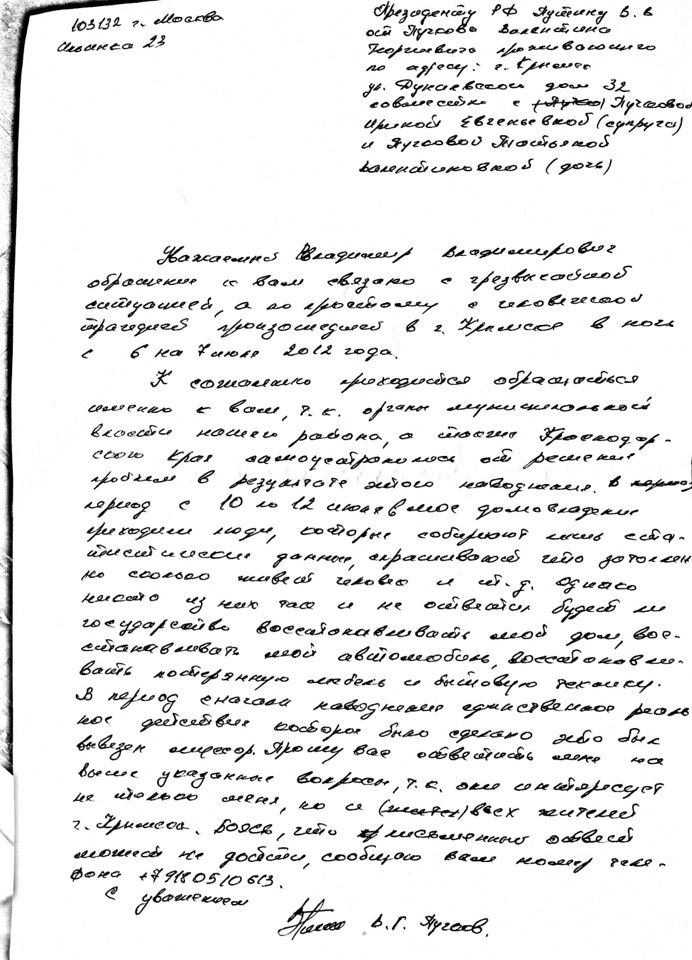 103132 г. Москва
Ильинка 23
Президенту РФ Путину В. В
от Пучкова Валентина
Георгиевича проживающего
по адресу: г. Крымск
ул. Дунаевского дом 32
совместно с (Пучко) Пучковой
Ириной Евгеньевной (супруга)
и Пучковой Татьяной
Валентиновной (дочь)
Уважаемый Владимир Владимирович
обращение к вам связано с чрезвычайной
ситуацией, а по простому с человеческой
трагедией произошедшей в г. Крымске в ночь
с 6 на 7 июля 2012 года.
К сожалению приходится обращаться
именно к вам, т.к. органы муниципальной
власти нашего района, а также Краснодар-
ского Края самоустранилось от решения
проблем в результате этого наводнения. В период
период с 10 по 12 июля в мое домовладение
приходили люди, которые собирают лишь ста-
тистические данные, спрашивают что затоплен
но сколько живет человек и т.д. Однако
никто из них так и не ответил будет ли
государство восстанавливать мой дом, вос-
станавливать мой автомобиль, восстанавли-
вать потерянную мебель и бытовую технику.
В период сначала наводнения единственное реаль
ное действие которое было сделано это был
вывезен мусор. Прошу вас ответить мне на
выше указанные вопросы, т.к. они интересует
не только меня, но и всех жителей
г. Крымска. Боясь, что письменный ответ
может не дойти, сообщаю вам номер теле-
фона +79180510613.
С уважением
В. Г. Пучков.